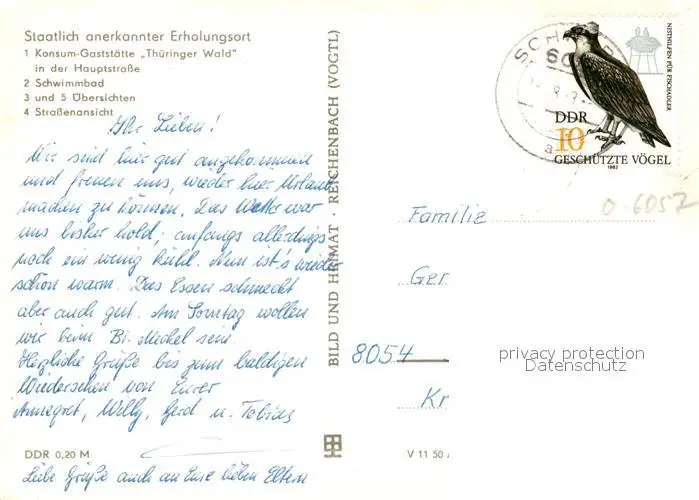 Staatlich anerkannter Erholungsort
1 Konsum-Gaststätte „Thüringer Wald"
in der Hauptstraße
2 Schwimmbad
3 und 5 Übersichten
4 Straßenansicht
Ihr Lieben!
Wir sind hier gut angekommen
und freuen uns, wieder hier Urlaub
machen zu können. Das Wetter war
uns bisher hold; anfangs allerdings
noch ein wenig kühl. Nun ist's wieder
schön warm. Das Essen schmeckt
aber auch gut. Am Sonntag wollen
wir beim Bi. Michel sein.
Herzliche Grüße bis zum baldigen
Wiedersehen von Eurer
Annegret, Willy, Gerd u. Tobias
DDR 0,20 M
Liebe Grüße auch an Eure lieben Eltern
BILD UND HEIMAT · REICHENBACH (VOGTL)
V 11 50
SCH
NISTHILFEN FÜR FISCHADLER
DDR
10
GESCHÜTZTE VÖGEL
1982
0-6057
Familie
Ger
8054
Kr
privacy protection
Datenschutz